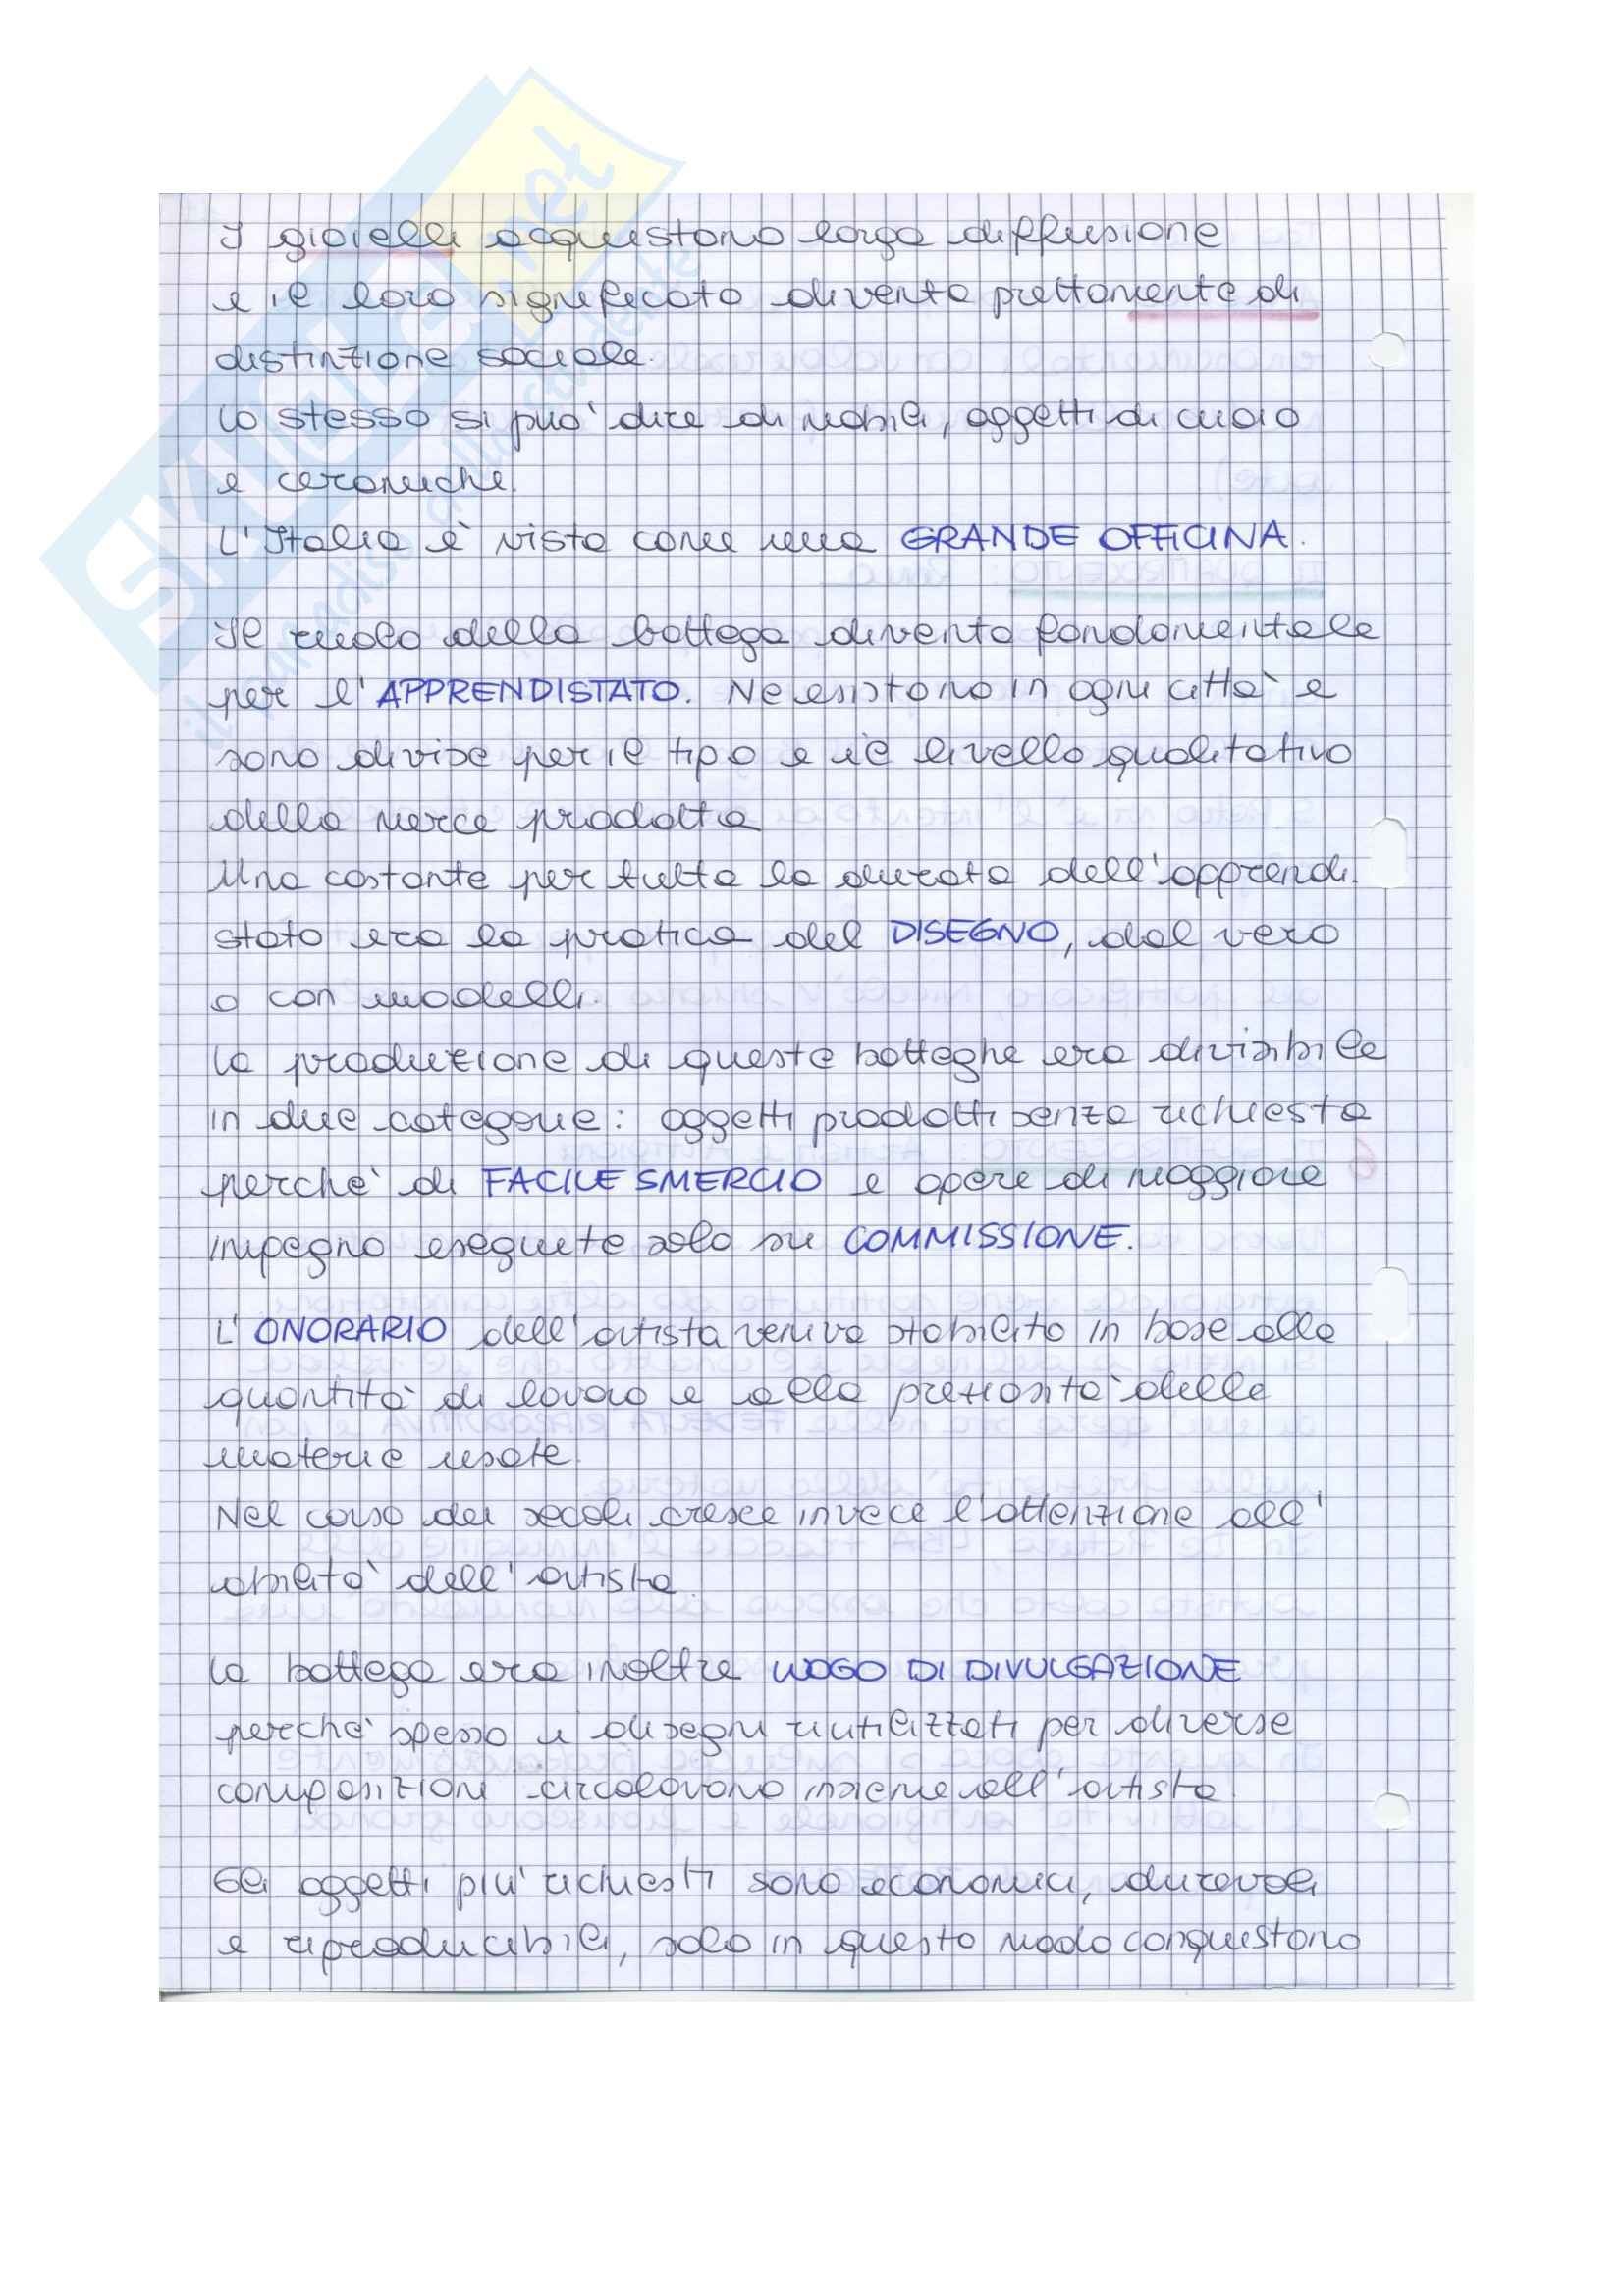 I gioielli acquistano larga diffusione
e il loro significato diventa prettamente di
distinzione sociale.
Lo stesso si può dire di mobili, oggetti di cuoio
e ceramiche.
L'Italia è vista come una GRANDE OFFICINA.
Il ruolo della bottega diventa fondamentale
per l'APPRENDISTATO. Ne esistono in ogni città e
sono divise per il tipo e il livello qualitativo
della merce prodotta
Una costante per tutta la durata dell'apprendi.
stato era la pratica del DISEGNO, dal vero
o con modelli.
La produzione di queste botteghe era divisibile
in due categorie: oggetti prodotti senza richiesta
perchè di FACILE SMERCIO e opere di maggiore
impegno eseguite solo su COMMISSIONE.
L'ONORARIO dell'artista veniva stabilito in base alla
quantità di lavoro e alla preziosità delle
materie usate.
Nel corso dei secoli cresce invece l'attenzione all'
abilità dell'artista.
La bottega era inoltre LUOGO DI DIVULGAZIONE
perchè spesso i disegni riutilizzati per diverse
composizioni circolavano insieme all'artista.
Gli oggetti più richiesti sono economici, durevoli
e riproducibili, solo in questo modo conquistano
SKUOLA.net
il paradiso dello studente